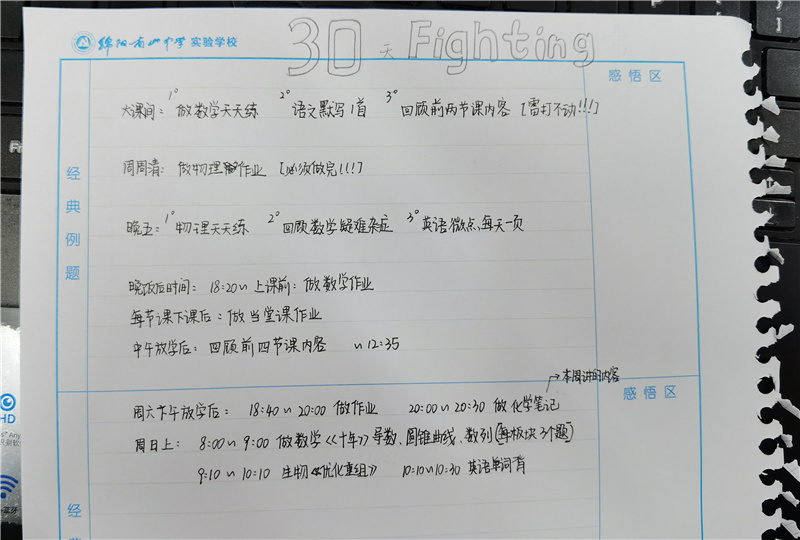 绵阳南山中学 实验学校
30天 Fighting
感悟区
大课间: 1° 做数学天天练 2° 语文默写1首 3° 回顾前两节课内容 [雷打不动!!!]
周周清: 做物理作业 [必须做完!!!]
经典例题
晚五: 1° 物理天天练 2° 回顾数学疑难杂症 3° 英语微点,每天一页
晚饭后时间: 18:20~上课前: 做数学作业
每节课下课后: 做当堂课作业
中午放学后: 回顾前四节课内容 ~12:35
→本周讲的内容
感悟区
周六下午放学后: 18:40~20:00 做作业 20:00~20:30 做化学笔记
周日上: 8:00~9:00 做数学《十年》导数、圆锥曲线、数列[每板块3个题]
9:10~10:10 生物《优化重组》 10:10~10:30 英语单词背
经
HD